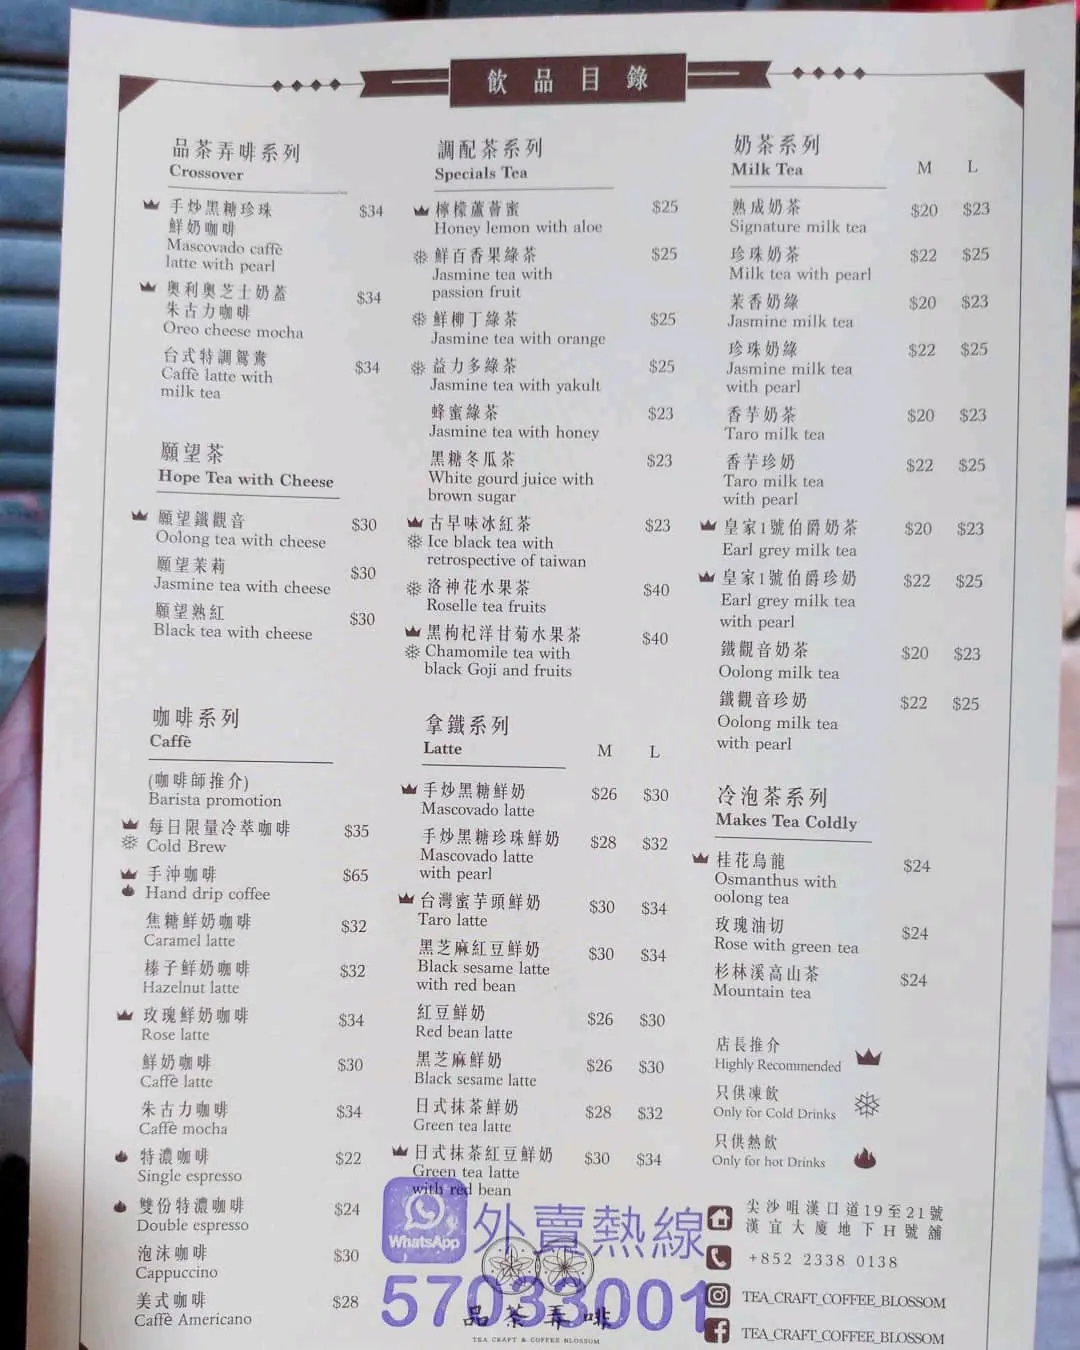 飲品目錄
品茶弄啡系列
Crossover
手炒黑糖珍珠 $34
鮮奶咖啡
Mascovado caffè
latte with pearl
奧利奧芝士奶蓋 $34
朱古力咖啡
Oreo cheese mocha
台式特調鴛鴦 $34
Caffè latte with
milk tea
願望茶
Hope Tea with Cheese
願望鐵觀音 $30
Oolong tea with cheese
願望茉莉 $30
Jasmine tea with cheese
願望熟紅 $30
Black tea with cheese
咖啡系列
Caffè
(咖啡師推介)
Barista promotion
每日限量冷萃咖啡 $35
Cold Brew
手沖咖啡 $65
Hand drip coffee
焦糖鮮奶咖啡 $32
Caramel latte
榛子鮮奶咖啡 $32
Hazelnut latte
玫瑰鮮奶咖啡 $34
Rose latte
鮮奶咖啡 $30
Caffè latte
朱古力咖啡 $34
Caffè mocha
特濃咖啡 $22
Single espresso
雙份特濃咖啡 $24
Double espresso
泡沫咖啡 $30
Cappuccino
美式咖啡 $28
Caffè Americano
調配茶系列
Specials Tea
檸檬蘆薈蜜 $25
Honey lemon with aloe
鮮百香果綠茶 $25
Jasmine tea with
passion fruit
鮮柳丁綠茶 $25
Jasmine tea with orange
益力多綠茶 $25
Jasmine tea with yakult
蜂蜜綠茶 $23
Jasmine tea with honey
黑糖冬瓜茶 $23
White gourd juice with
brown sugar
古早味冰紅茶 $23
Ice black tea with
retrospective of taiwan
洛神花水果茶 $40
Roselle tea fruits
黑枸杞洋甘菊水果茶 $40
Chamomile tea with
black Goji and fruits
拿鐵系列
Latte M L
手炒黑糖鮮奶 $26 $30
Mascovado latte
手炒黑糖珍珠鮮奶 $28 $32
Mascovado latte
with pearl
台灣蜜芋頭鮮奶 $30 $34
Taro latte
黑芝麻紅豆鮮奶 $30 $34
Black sesame latte
with red bean
紅豆鮮奶 $26 $30
Red bean latte
黑芝麻鮮奶 $26 $30
Black sesame latte
日式抹茶鮮奶 $28 $32
Green tea latte
日式抹茶紅豆鮮奶 $30 $34
Green tea latte
with red bean
WhatsApp
外賣熱線
57033001
品茶弄啡
TEA CRAFT & COFFEE BLOSSOM
奶茶系列
Milk Tea M L
熟成奶茶 $20 $23
Signature milk tea
珍珠奶茶 $22 $25
Milk tea with pearl
茉香奶綠 $20 $23
Jasmine milk tea
珍珠奶綠 $22 $25
Jasmine milk tea
with pearl
香芋奶茶 $20 $23
Taro milk tea
香芋珍奶 $22 $25
Taro milk tea
with pearl
皇家1號伯爵奶茶 $20 $23
Earl grey milk tea
皇家1號伯爵珍奶 $22 $25
Earl grey milk tea
with pearl
鐵觀音奶茶 $20 $23
Oolong milk tea
鐵觀音珍奶 $22 $25
Oolong milk tea
with pearl
冷泡茶系列
Makes Tea Coldly
桂花烏龍 $24
Osmanthus with
oolong tea
玫瑰油切 $24
Rose with green tea
杉林溪高山茶 $24
Mountain tea
店長推介
Highly Recommended
只供凍飲
Only for Cold Drinks
只供熱飲
Only for hot Drinks
尖沙咀漢口道19至21號
漢宜大廈地下H號舖
+852 2338 0138
TEA_CRAFT_COFFEE_BLOSSOM
TEA_CRAFT_COFFEE_BLOSSOM